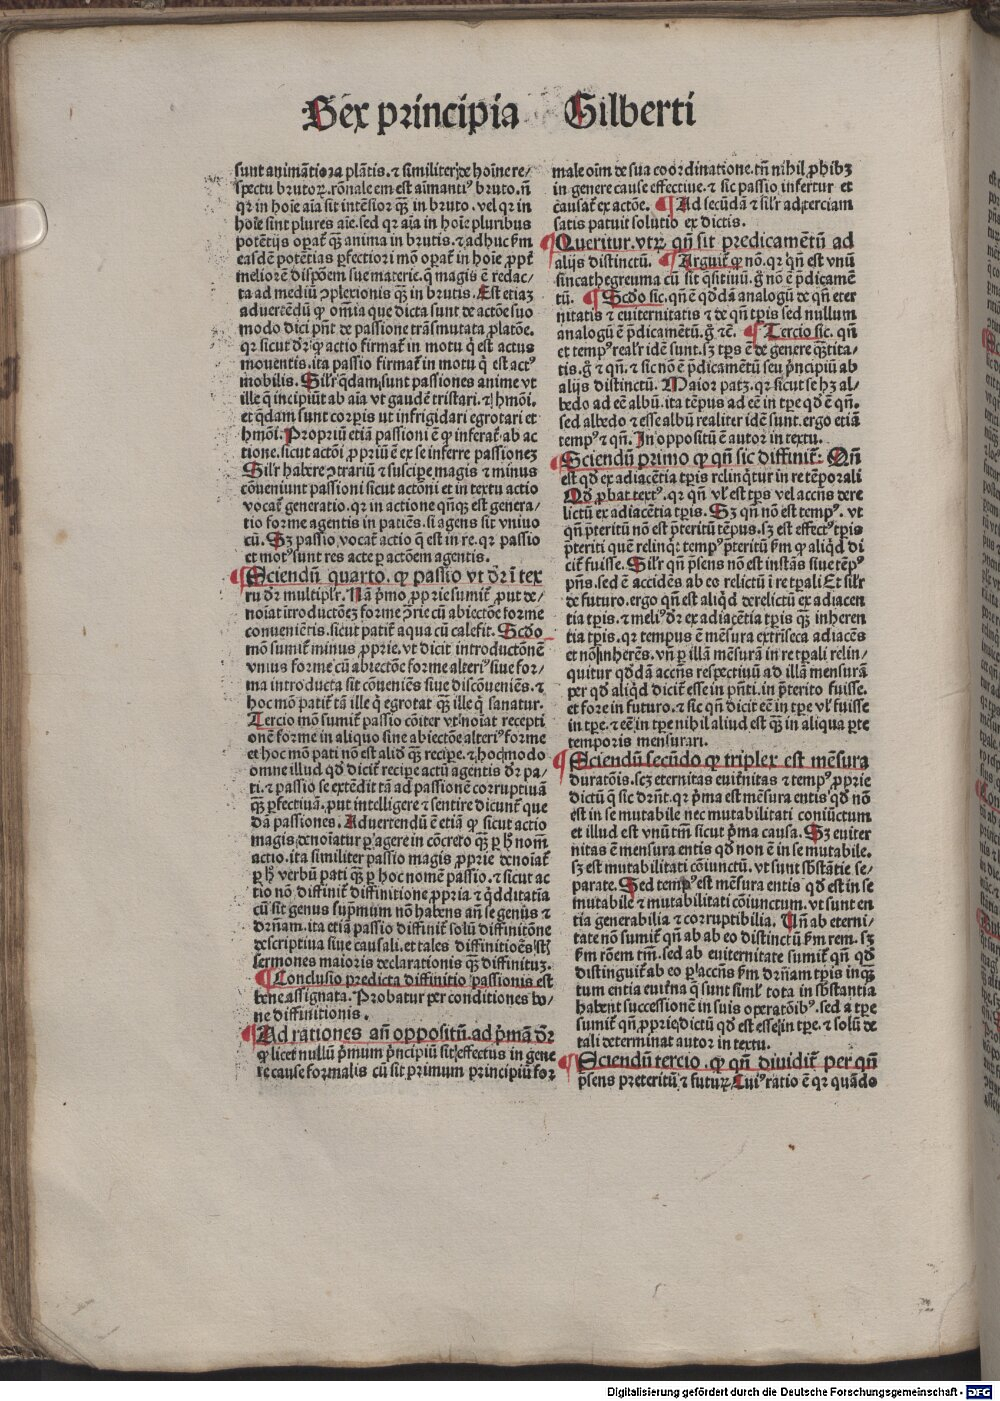 Sex principia Gilberti
sunt animātiora plātis. ⁊ similiter de hoīne re/
spectu brutoꝝ. rōnale em est aīmantiꝰ bruto. ñ
qꝛ in hoīe aīa sit intēsior qꝫ̄ in bruto. vel qꝛ in
hoīe sint plures aīe. sed qꝛ aīa in hoīe pluribus
potētijs opat̄ qꝫ̄ anima in brutis. ⁊ adhuc ẜm
easdē potētias ꝑfectiori mō opat̄ in hoīe ꝓpt̄
meliorē dispōem sue materie. q̄ magis ē redac/
ta ad mediū ↄplexionis qꝫ̄ in brutis. Est etiaꝫ
aduertēdū ꝙ om̄ia que dicta sunt de actōe suo
modo dici pn̄t de passione trāsmutata ꝓ platōe.
qꝛ sicut dr̄ ꝙ actio firmat̄ in motu q̄ est actus
mouentis. ita passio firmat̄ in motu q̄ est actꝰ
mobilis. Silr̄ q̄dam sunt passiones anime vt
ille q̄ incipiūt ab aīa vt gaudē tristari. ⁊ hmōi.
et q̄dam sunt corpis ut infrigidari egrotari et
hmōi. Propriū etiā passioni ē ꝙ inferat̄ ab ac
tione. sicut actōi ꝓpriū ē ex se inferre passioneꝫ
Silr̄ habere ↄtrariū ⁊ suscipe magis ⁊ minus
cōueniunt passioni sicut actōni et in textu actio
vocat̄ generatio. qꝛ in actione qn̄qꝫ est genera/
tio forme agentis in patiēs. si agens sit vniuo
cū. Sꝫ passio vocat̄ actio q̄ est in re. qꝛ passio
et motꝰ sunt res acte ꝑ actōem agentis.
Sciendū quarto. ꝙ passio vt dr̄ ī tex
tu dr̄ multiplr̄. Nā pͥmo ꝓprie sumit̄ ꝓut de/
noīat ītroductōeꝫ forme ↄ̄rie cū abiectōe forme
conuenīētis. sicut patit̄ aqua cū calefit. Scd̄o
mō sumit̄ minus ꝓprie. vt dicit introductōnē
vnius forme cū abiectōe forme alteriꝰ siue for/
ma introducta sit cōueniēs siue discōueniēs. ⁊
hoc mō patit̄ tā ille q̄ egrotat qꝫ̄ ille q̄ sanatur.
Tercio mō sumit̄ passio cōiter vt noīat recepti
onē forme in aliquo sine abiectōe alteriꝰ forme
et hoc mō pati nō est aliud qꝫ̄ recipe. ⁊ hoc modo
omne illud qd̄ dicit̄ recipe actū agentis dr̄ pa/
ti. ⁊ passio se extēdit tā ad passionē corruptiuā
qꝫ̄ ꝑfectiuā. put intelligere ⁊ sentire dicunt̄ que
dā passiones. Aduertendū ē etiā ꝙ sicut actio
magis denoīatur ꝑ agere in cōcreto qꝫ̄ ꝑ h̄ nom̄
actio. ita similiter passio magis ꝓprie denoīat̄
ꝑ h̄ verbū pati qꝫ̄ ꝑ hoc nomē passio. ⁊ sicut ac
tio nō diffinit̄ diffinitione ꝓpria ⁊ q̄dditatīa
cū sit genus supmum nō habens añ se genus ⁊
dr̄nam. ita etiā passio diffinit̄ solū diffinitōne
descriptiua siue causali. et tales diffinitioēs st̄
sermones maioris declarationis qꝫ̄ diffinituꝫ.
Conclusio predicta diffinitio passionis est
bene assignata. Probatur per conditiones bo/
ne diffinitionis.
Ad rationes añ oppositū. ad pͥmā dr̄
ꝙ licet nullū pͥmum pͥncipiū sit effectus in gene
re cause formalis cū sit primum principiū for
male oīm de sua coordinatione. tn̄ nihil ꝓhibꝫ
in genere cause effectiue. ⁊ sic passio infertur et
causat̄ ex actōe. Ad secūdā ⁊ silr̄ ad terciam
satis patuit solutio ex dictis.
Queritur. vtꝝ qn̄ sit predicamētū ad
alijs distinctū. Arguit̄ ꝙ nō. qꝛ qn̄ est vnū
sincathegreuma cū sit q̄sitiuū. g̊ nō ē p̄dicamē
tū. Scd̄o sic. qn̄ ē qd̄dā analogū de qn̄ eter
nitatis ⁊ euiternitatis ⁊ de qn̄ tp̄is sed nullum
analogū ē p̄dicamētū. g̊ ⁊c̄. Tercio sic. qn̄
et tempꝰ realr̄ idē sunt. sꝫ tp̄s ē de genere qꝫ̄tita/
tis. g̊ ⁊ qn̄. ⁊ sic nō ē p̄dicamētū seu pͥncipiū ab
alijs distinctū. Maior patꝫ. qꝛ sicut se hꝫ al/
bedo ad eē albū. ita tēpus ad eē in tp̄e qd̄ ē qn̄.
sed albedo ⁊ esse albū realiter idē sunt. ergo etiā
tempꝰ ⁊ qn̄. In oppositū ē autor in textu.
Sciendū primo ꝙ qn̄ sic diffinit̄: Qn̄
est qd̄ ex adiacētia tp̄is relinq̄tur in re tēporali
Qd̄ ꝓbat textꝰ. qꝛ qn̄ vl̄ est tp̄s vel accn̄s dere
lictū ex adiacētia tp̄is. Sꝫ qn̄ nō est tempꝰ. vt
qn̄ p̄teritū nō est p̄teritū tēpus. sꝫ est effectꝰ tp̄is
p̄teriti quē relinq̄t tempꝰ p̄teritū ẜm ꝙ aliqd̄ di
cit̄ fuisse. Silr̄ qn̄ p̄sens nō est instās siue tēpꝰ
pn̄s. sed ē accidēs ab eo relictū ī re tp̄ali Et silr̄
de futuro. ergo qn̄ est aliqd̄ derelictū ex adiacen
tia tp̄is. ⁊ meliꝰ dr̄ ex adiacētia tp̄is qꝫ̄ inheren
tia tp̄is. qꝛ tempus ē mēsura extriseca adiacēs
et nō inherēs. vn̄ ꝑ illā mēsurā in re tp̄ali relin/
quitur qd̄dā accn̄s respectiuū ad illā mensurā
per qd̄ aliqd̄ dicit̄ esse in pn̄ti. in p̄terito fuisse.
et fore in futuro. ⁊ sic qn̄ dicit eē in tp̄e vl̄ fuisse
in tp̄e. ⁊ eē in tp̄e nihil aliud est qꝫ̄ in aliqua pte
temporis mensurari.
Sciendū secūdo ꝙ triplex est mēsura
duratōis. scꝫ eternitas euit̄nitas ⁊ tempꝰ ꝓprie
dictū q̄ sic dr̄nt. qꝛ pͥma est mēsura entis qd̄ nō
est in se mutabile nec mutabilitati coniūctum
et illud est vnū tm̄ sicut pͥma causa. Sꝫ euiter
nitas ē mensura entis qd̄ non ē in se mutabile.
sꝫ est mutabilitati cōiunctū. vt sunt sb̄stātie se/
parate. Sed tempꝰ est mēsura entis qd̄ est in se
mutabile ⁊ mutabilitati cōiunctum. vt sunt en
tia generabilia ⁊ corruptibilia. Vn̄ ab eterni/
tate nō sumit̄ qn̄ ab ab eo distinctū ẜm rem. sꝫ
ẜm rōem tm̄. sed ab euiternitate sumit̄ qn̄ qd̄
distinguit̄ ab eo ꝑ accn̄s ẜm dr̄nam tp̄is inqꝫ̄
tum entia euit̄na q̄ sunt siml̄ tota in sb̄stantia
habent successionē in suis operatōibꝰ. sed a tp̄e
sumit̄ qn̄ ꝓprie dictū qd̄ est esse in tp̄e. ⁊ solū de
tali determinat autor in textu.
Sciendū tercio. ꝙ qn̄ diuidit̄ per qn̄
p̄sens preteritū ⁊ futuꝝ. Cuiꝰ ratio ē qꝛ quādo
Digitalisierung gefördert durch die Deutsche Forschungsgemeinschaft - DFG